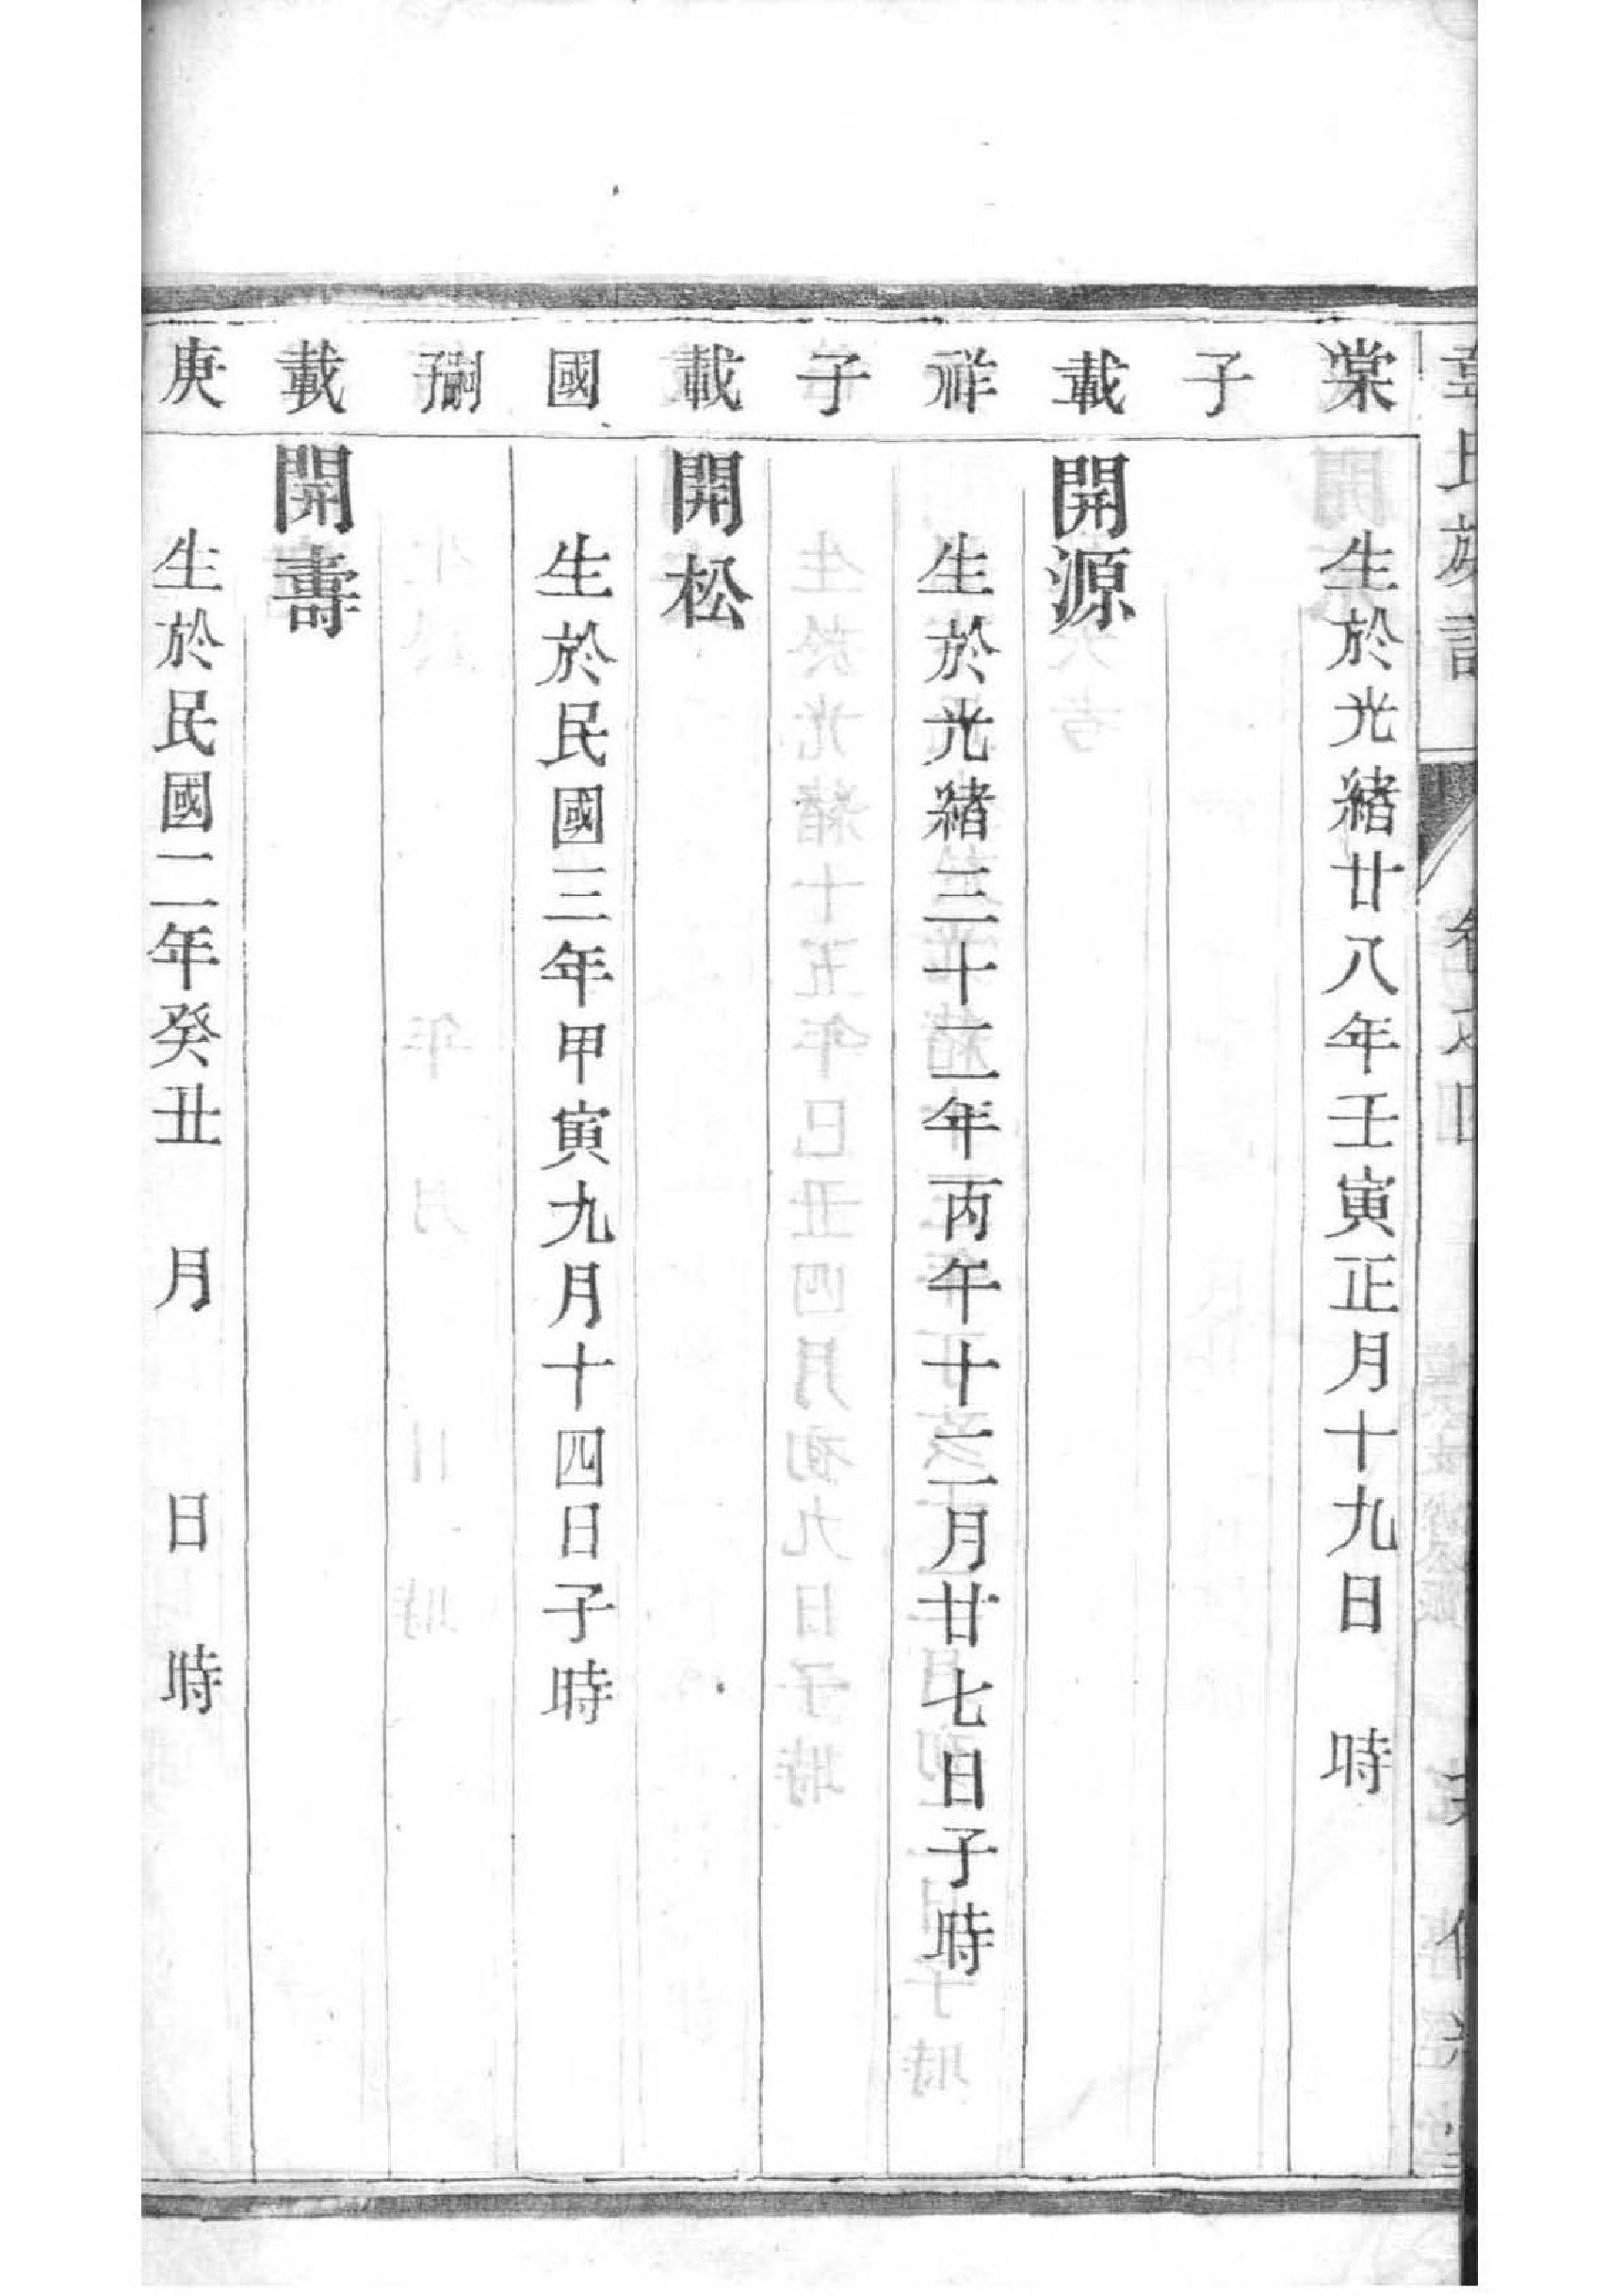 棠 生於光緒廿八年壬寅正月十九日 時
子
載 開源
祥 生於光緒三十二年丙午十二月廿七日子時
子
載 開松
國 生於民國三年甲寅九月十四日子時
載 開壽
庚 生於民國二年癸丑 月 日 時